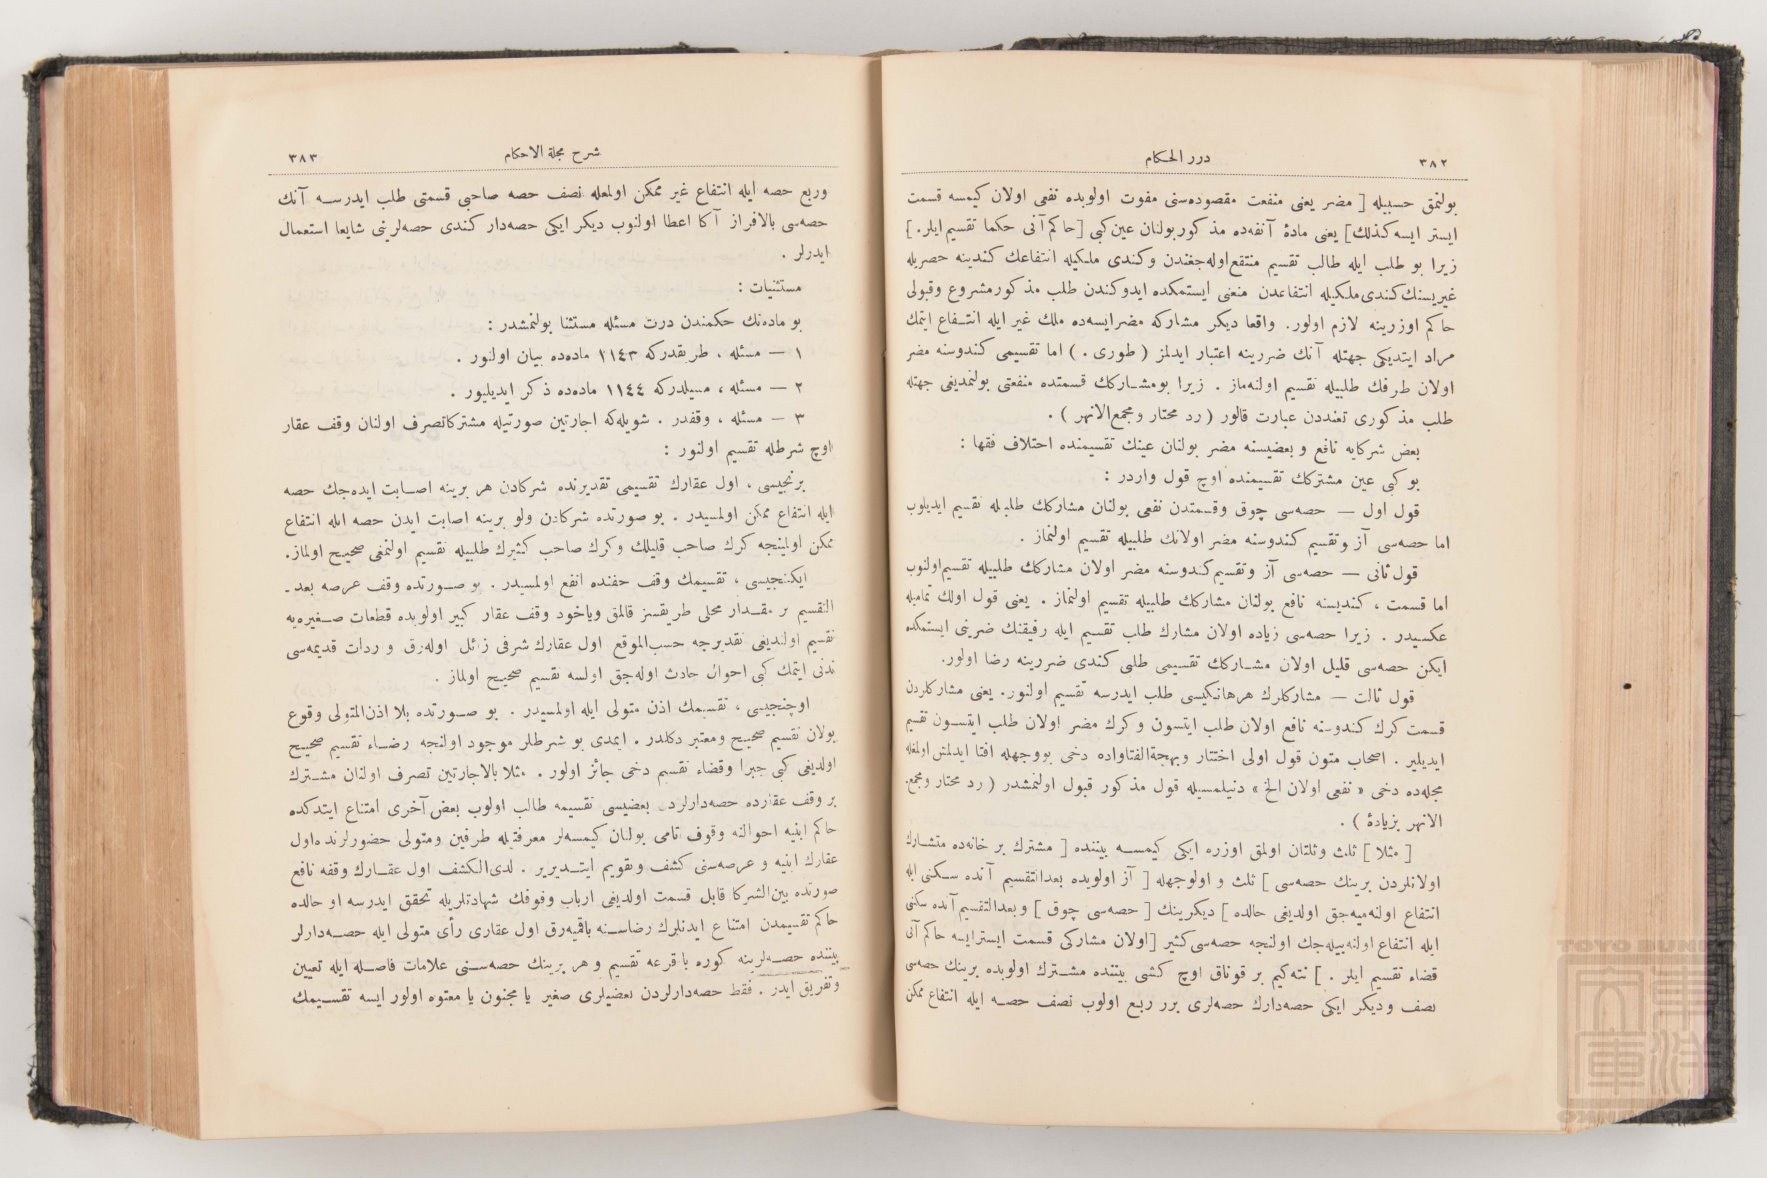 ٣٨٢
درر الحكام
بولنمق حسبيله [ مضر يعنى منفعت مقصوده‌سنى مفوت اولوبده نفعى اولان كيمسه قسمت
ايستر ايسه كذلك] يعنى مادۀ آنفه‌ده مذكور بولنان عين كبى [حاكم آنى حكما تقسيم ايلر.]
زيرا بو طلب ايله طالب تقسيم منتفع اوله‌جغندن وكندى ملكيله انتفاعك كندينه حصريله
غيريسنك كندى ملكيله انتفاعدن منعنى ايستمكده ايدوكندن طلب مذكور مشروع وقبولى
حاكم اوزرينه لازم اولور. واقعا ديكر مشاركه مضر ايسه‌ده ملك غير ايله انتفاع ايتمك
مراد ايتديكى جهتله آنك ضررينه اعتبار ايدلمز ( طورى . ) اما تقسيمى كندوسنه مضر
اولان طرفك طلبيله تقسيم اولنه‌ماز . زيرا بو مشاركك قسمتده منفعتى بولنمديغى جهتله
طلب مذكورى تعنددن عبارت قالور ( رد محتار و مجمع الانهر ) .
بعض شركايه نافع و بعضيسنه مضر بولنان عينك تقسيمنده اختلاف فقها :
بو كبى عين مشتركك تقسيمنده اوچ قول واردر :
قول اول — حصه‌سى چوق وقسمتدن نفعى بولنان مشاركك طلبيله تقسيم ايديلوب
اما حصه‌سى آز وتقسيم كندوسنه مضر اولانك طلبيله تقسيم اولنماز .
قول ثانى — حصه‌سى آز وتقسيم كندوسنه مضر اولان مشاركك طلبيله تقسيم اولنوب
اما قسمت ، كنديسنه نافع بولنان مشاركك طلبيله تقسيم اولنماز . يعنى قول اولك تماميله
عكسيدر . زيرا حصه‌سى زياده اولان مشارك طلب تقسيم ايله رفيقنك ضررينى ايستمكده
ايكن حصه‌سى قليل اولان مشاركك تقسيمى طلبى كندى ضررينه رضا اولور.
قول ثالث — مشاركلرك هرهانكيسى طلب ايدرسه تقسيم اولنور. يعنى مشاركلردن
قسمت كرك كندوسنه نافع اولان طلب ايتسون و كرك مضر اولان طلب ايتسون تقسيم
ايديلير . اصحاب متون قول اولى اختيار وبهجةالفتاواده دخى بووجهله افتا ايدلمش اولمغله
مجله‌ده دخى « نفعى اولان الخ » دنيلمسيله قول مذكور قبول اولنمشدر ( رد محتار ومجمع
الانهر بزيادة ) .
[ مثلا ] ثلث وثلثان اولمق اوزره ايكى كيمسه بيننده [ مشترك بر خانه‌ده متشارك
اولانلردن برينك حصه‌سى ] ثلث و اولوجهله [ آز اولوبده بعدالتقسيم آنده سكنى ايله
انتفاع اولنه‌ميه‌جق اولديغى حالده ] ديكرينك [ حصه‌سى چوق ] و بعدالتقسيم آنده سكنى
ايله انتفاع اولنه‌بيله‌جك اولنجه حصه‌سى كثير [اولان مشاركى قسمت ايستر ايسه حاكم آنى
قضاء تقسيم ايلر . ] نته‌كيم بر قوناق اوچ كشى بيننده مشترك اولوبده برينك حصه‌سى
نصف و ديكر ايكى حصه‌دارك حصه‌لرى برر ربع اولوب نصف حصه ايله انتفاع ممكن
شرح مجلة الاحكام
٣٨٣
وربع حصه ايله انتفاع غير ممكن اولمغله نصف حصه صاحبى قسمتى طلب ايدرسه آنك
حصه‌سى بالافراز آكا اعطا اولنوب ديكر ايكى حصه‌دار كندى حصه‌لرينى شايعا استعمال
ايدرلر .
مستثنيات :
بو ماده‌نك حكمندن درت مسئله مستثنا بولنمشدر :
١ — مسئله ، طريقدركه ١١٤٣ ماده‌ده بيان اولنور .
٢ — مسئله ، مسيلدركه ١١٤٤ ماده‌ده ذكر ايديليور .
٣ — مسئله ، وقفدر . شويله‌كه اجارتين صورتيله مشتركا تصرف اولنان وقف عقار
اوچ شرطله تقسيم اولنور :
برنجيسى ، اول عقارك تقسيمى تقديرنده شركادن هر برينه اصابت ايده‌جك حصه
ايله انتفاع ممكن اولمسيدر . بو صورتده شركادن ولو برينه اصابت ايدن حصه ايله انتفاع
ممكن اولمينجه كرك صاحب قليلك وكرك صاحب كثيرك طلبيله تقسيم اولنمغى صحيح اولماز.
ايكنجيسى ، تقسيمك وقف حقنده انفع اولمسيدر . بو صورتده وقف عرصه بعد ـ
التقسيم بر مقدار محلى طريقسز قالمق وياخود وقف عقار كبير اولوبده قطعات صغيره‌يه
تقسيم اولنديغى تقديرجه حسب‌الموقع اول عقارك شرفى زائل اوله‌رق و ردات قديمه‌سى
تدنى ايتمك كبى احوال حادث اوله‌جق اولسه تقسيم صحيح اولماز .
اوچنجيسى ، تقسيمك اذن متولى ايله اولمسيدر . بو صورتده بلا اذن‌المتولى وقوع
بولان تقسيم صحيح ومعتبر دكلدر . ايمدى بو شرطلر موجود اولنجه رضاء تقسيم صحيح
اولديغى كبى جبرا وقضاء تقسيم دخى جائز اولور . مثلا بالاجارتين تصرف اولنان مشترك
بر وقف عقارده حصه‌دارلردن بعضيسى تقسيمه طالب اولوب بعض آخرى امتناع ايتدكده
حاكم ابنيه احوالنه وقوف تامى بولنان كيمسه‌لر معرفتيله طرفين ومتولى حضورلرنده اول
عقارك ابنيه و عرصه‌سنى كشف وتقويم ايتديرير . لدى‌الكشف اول عقارك وقفه نافع
صورتده بين‌الشركا قابل قسمت اولديغى ارباب وقوفك شهادتلريله تحقق ايدرسه او حالده
حاكم تقسيمدن امتناع ايدنلرك رضاسنه باقميه‌رق اول عقارى رأى متولى ايله حصه‌دارلر
بيننده حصه‌لرينه كوره باقرعه تقسيم و هر برينك حصه‌سنى علامات فاصله ايله تعيين
وتفريق ايدر . فقط حصه‌دارلردن بعضيلرى صغير يا مجنون يا معتوه اولور ايسه تقسيمك
TOYO BUNKO